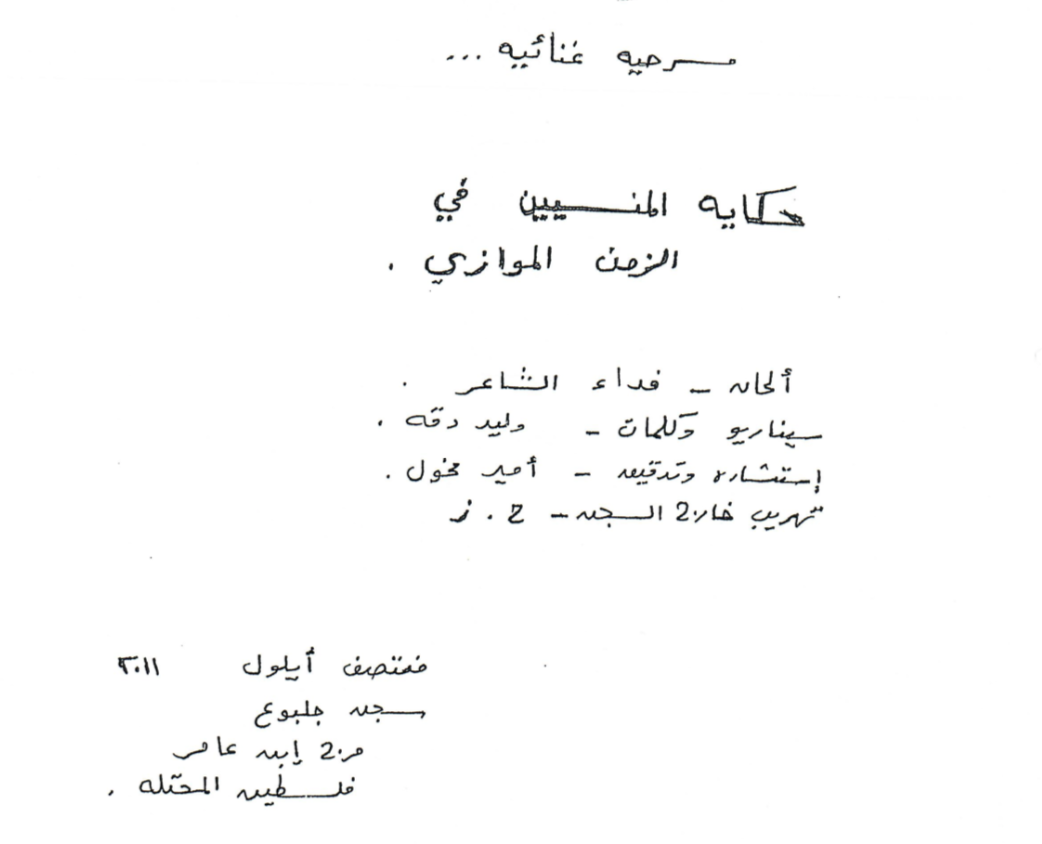 مسرحيه غنائيه ...
حكايه المنسيين في
الزمن الموازي .
ألحان - فداء الشاعر .
سيناريو وكلمات - وليد دقه .
إستشاره وتدقيق - أمير مخول .
تهريب خارج السجن - ح . ز
منتصف أيلول ٢٠١١
سجن جلبوع
مرج إبن عامر
فلسطين المحتله .